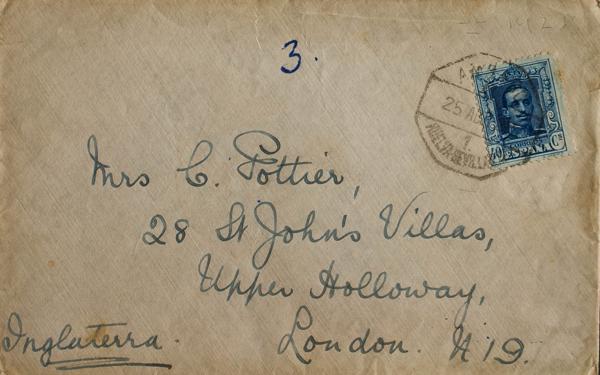 3.
25
40 ESPAÑA Cs
Mrs C. Pottier,
28 St John's Villas,
Upper Holloway,
London. N 19.
Inglaterra.